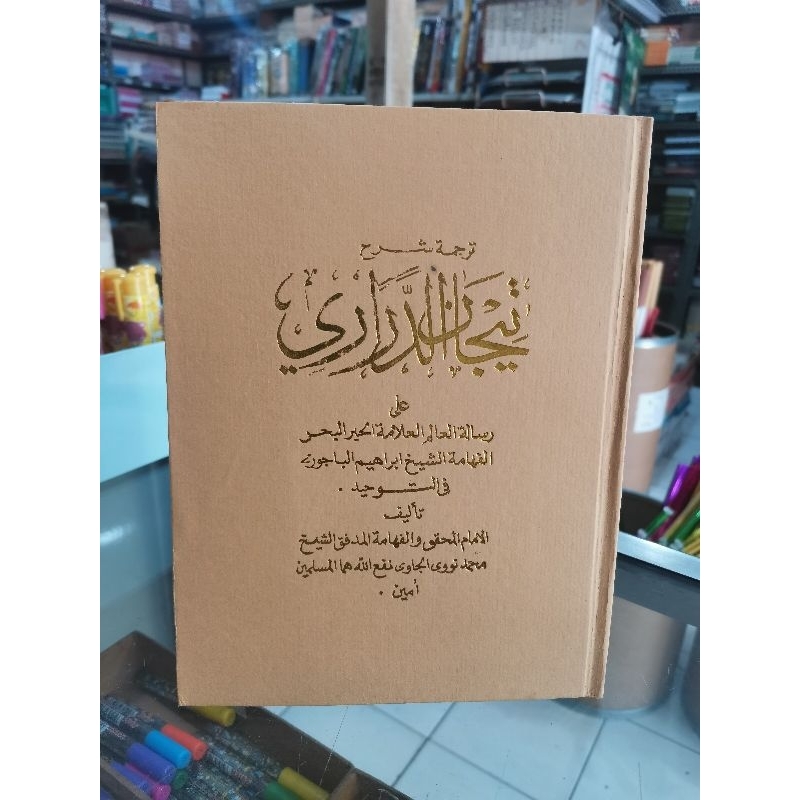 ترجمة شرح
تِيْجَان الدَّرَارِي
على
رسالة العالم العلامة الحبر البحر
الفهامة الشيخ ابراهيم الباجوري
فى التوحيد .
تأليف
الامام المحقق والفهامة المدقق الشيخ
محمد نووى الجاوى نفع الله هما المسلمين
أمين .